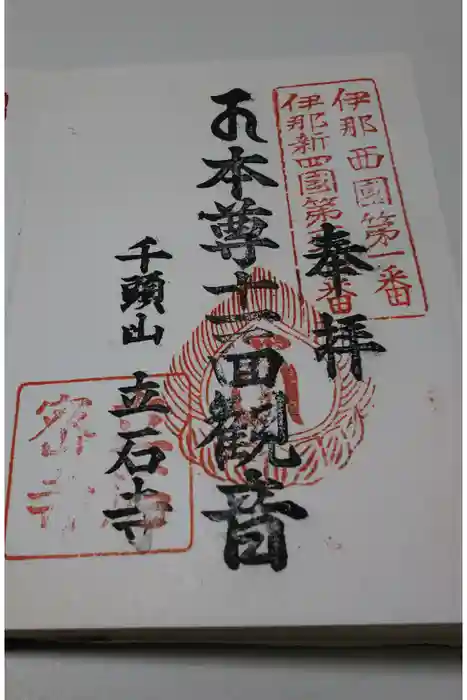 伊那西國第一番
伊那新四國第 番
奉拝
本尊十一面観音
千頭山
立石寺